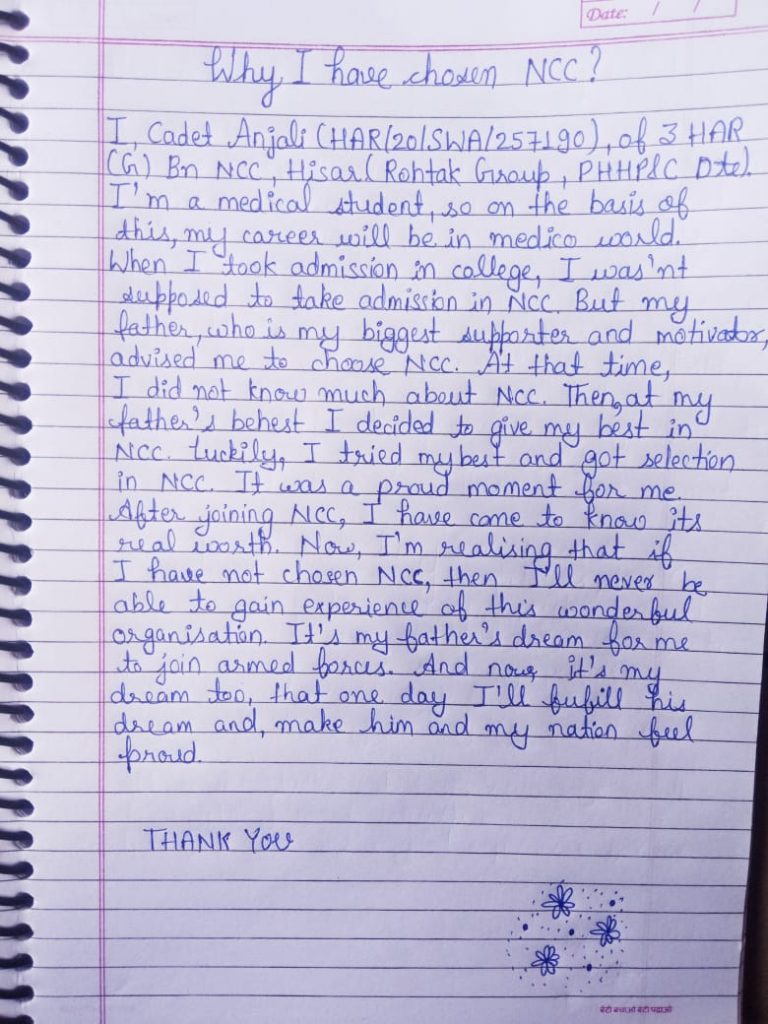 Date: / /
Why I have chosen NCC?
I, Cadet Anjali (HAR/20/SWA/257190), of 3 HAR
(G) Bn NCC, Hisar (Rohtak Group, PHHP&C Dte).
I'm a medical student, so on the basis of
this, my career will be in medico world.
When I took admission in college, I was'nt
supposed to take admission in NCC. But my
father, who is my biggest supporter and motivator,
advised me to choose NCC. At that time,
I did not know much about NCC. Then, at my
father's behest I decided to give my best in
NCC. Luckily, I tried my best and got selection
in NCC. It was a proud moment for me.
After joining NCC, I have come to know its
real worth. Now, I'm realising that if
I have not chosen NCC, then I'll never be
able to gain experience of this wonderful
organisation. It's my father's dream for me
to join armed forces. And now, it's my
dream too, that one day I'll fulfill his
dream and, make him and my nation feel
proud.
THANK YOU
बेटी बचाओ बेटी पढ़ाओ